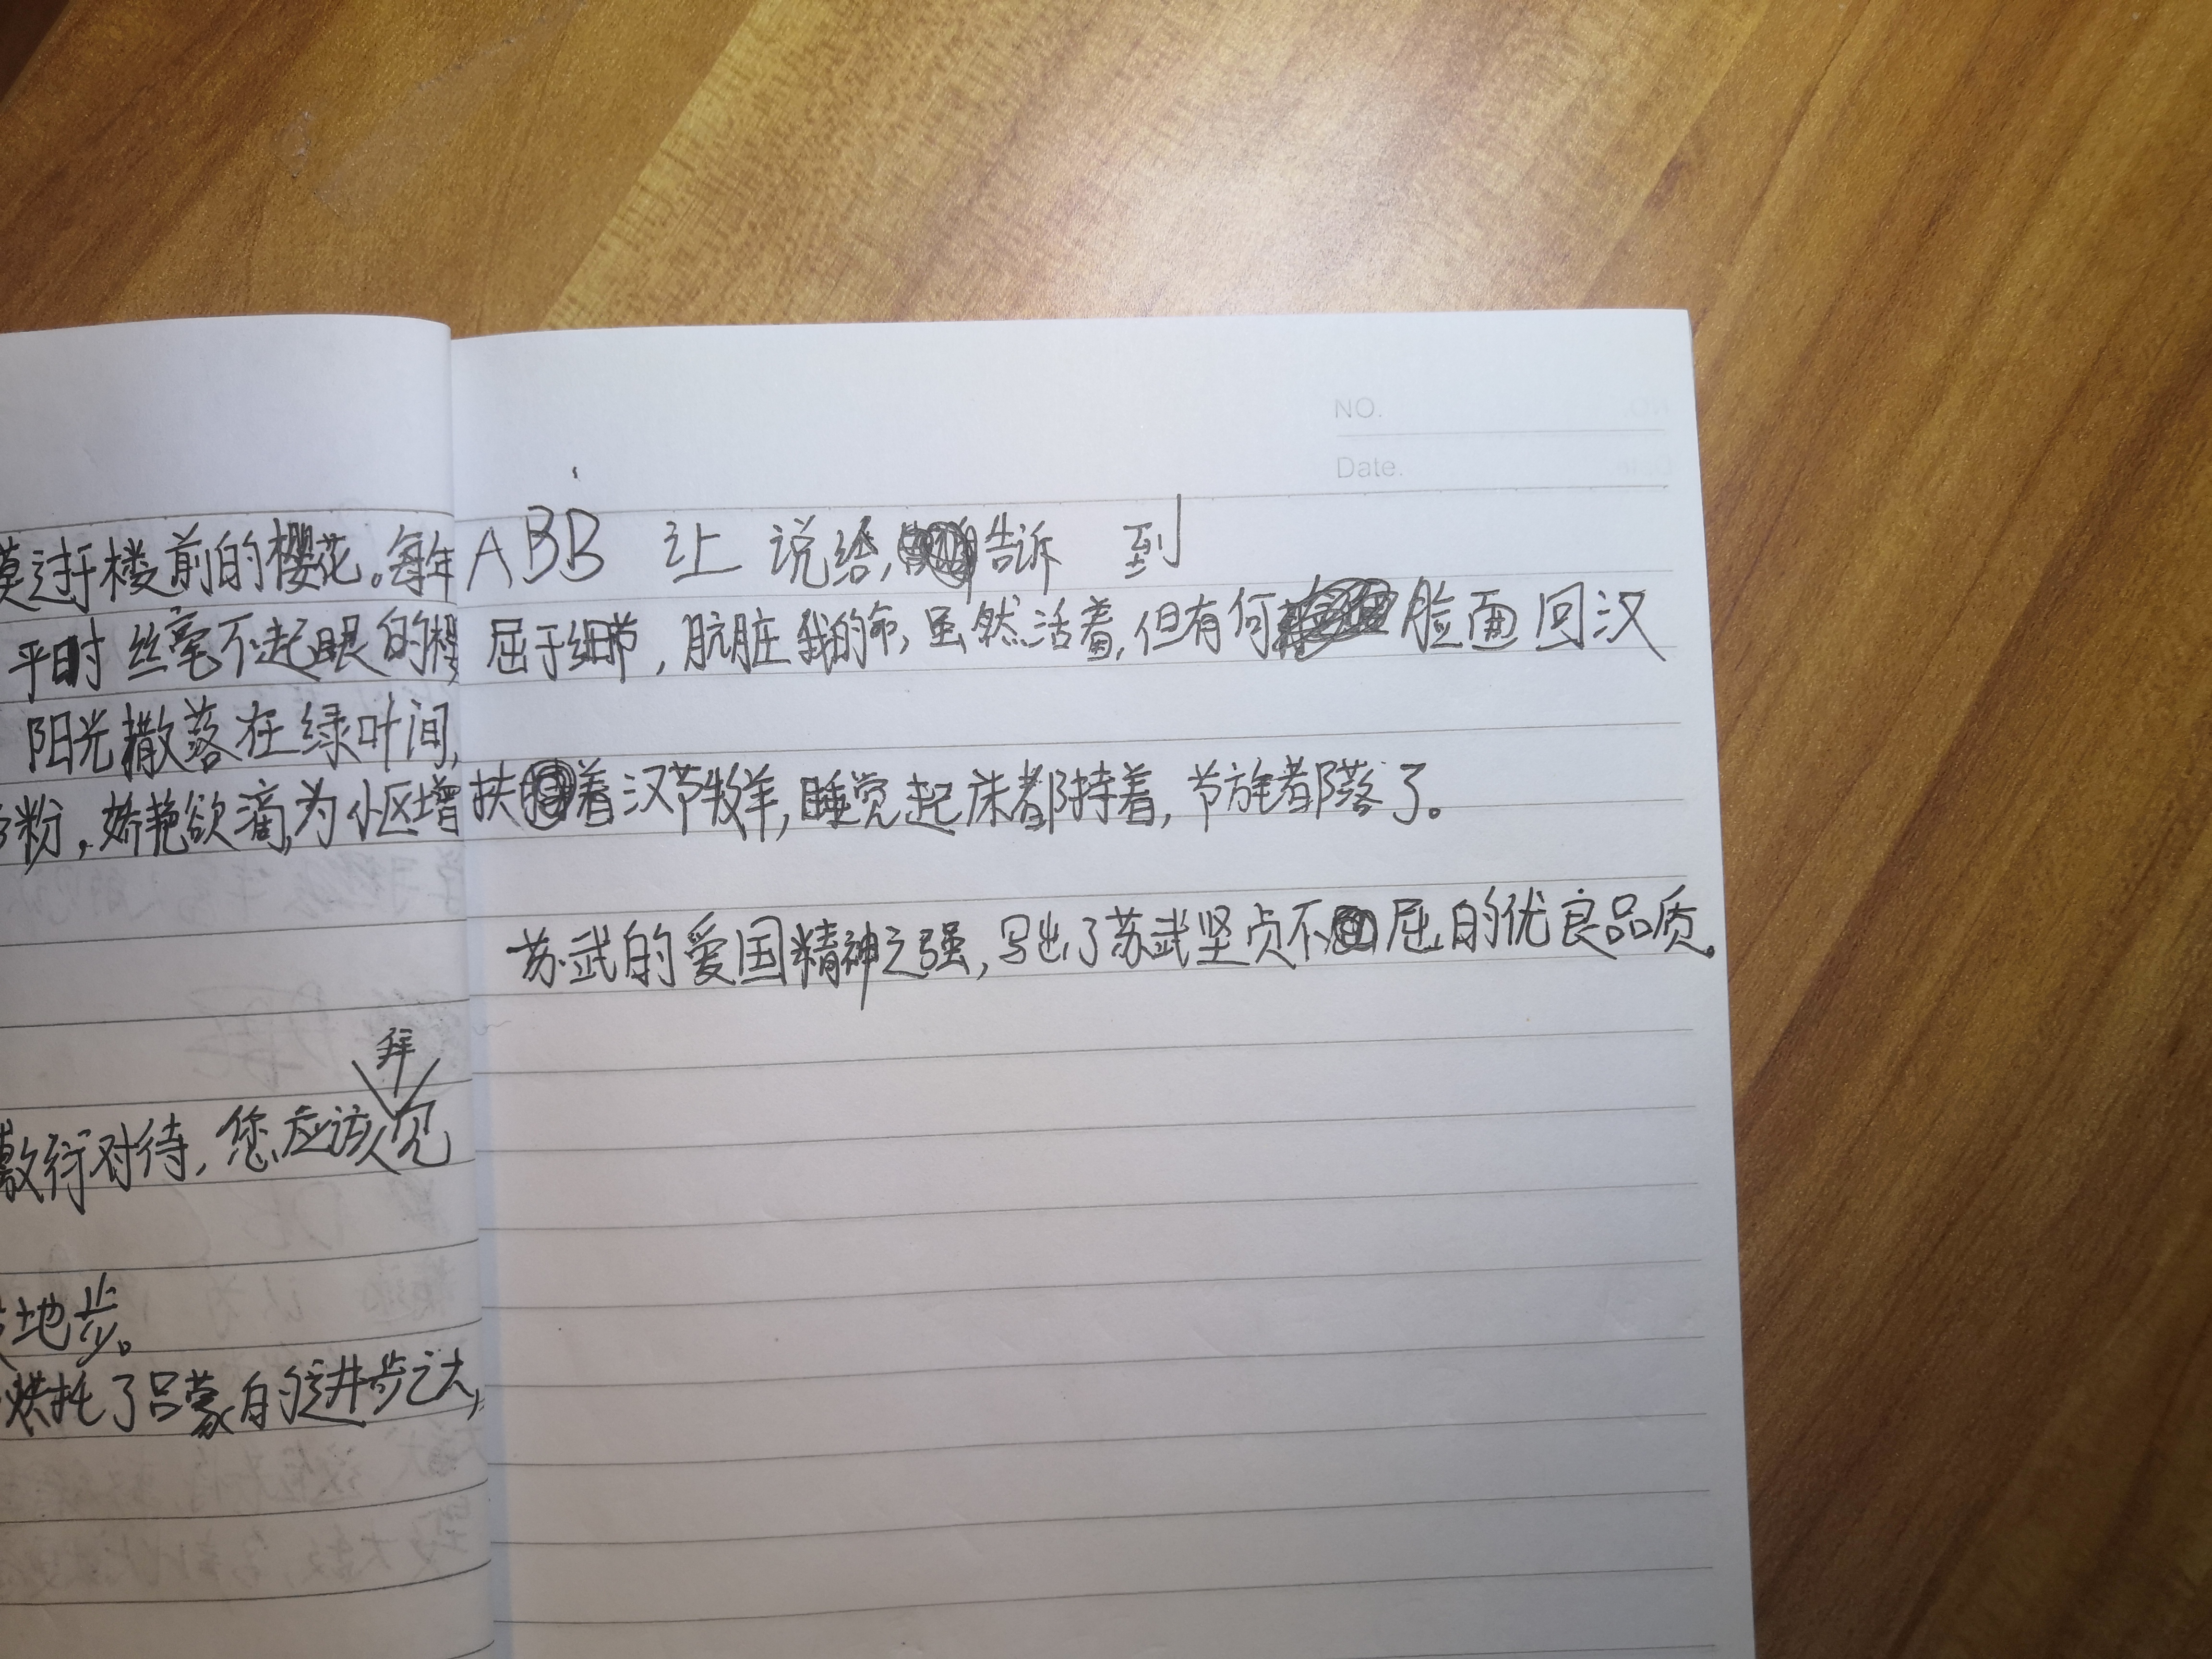 过于楼前的樱花。每年
平时丝毫不起眼的樱
阳光撒落在绿叶间,
粉,娇艳欲滴,为小区增
拜
敷衍对待,您应该见
地步。
烘托了吕蒙的进步之大,
NO.
Date.
ABB 让 说给,告诉 到
屈于细节,肮脏我的命,虽然活着,但有何脸面回汉
扶着汉节牧羊,睡觉起床都持着,节旄都落了。
苏武的爱国精神之强,写出了苏武坚贞不屈的优良品质。